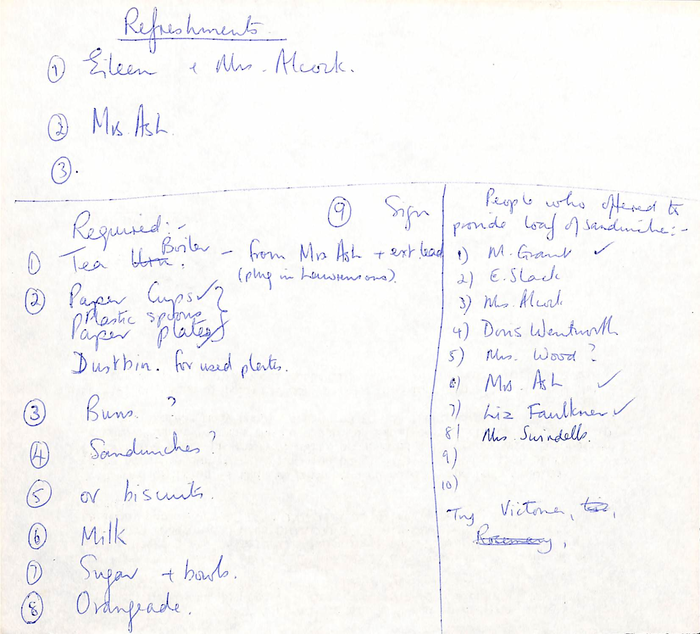 Refreshments
① Eileen + Mrs. Alcock.
② Mrs Ash.
③.
Required:-
① Tea Urn. Boiler - from Mrs Ash + ext lead
(plug in Lawrensons).
② Paper Cups ✓
Plastic spoons
Paper plates ✓
Dustbin. for used plates.
③ Buns. ?
④ Sandwiches?
⑤ or biscuits.
⑥ Milk
⑦ Sugar + bowls.
⑧ Orangeade.
⑨ Sign
People who offered to
provide loaf of sandwiches:-
1) M. Grant ✓
2) E. Slack
3) Mrs. Alcock
4) Doris Wentworth
5) Mrs. Wood ?
6) Mrs. Ash ✓
7) Liz Faulkner ✓
8) Mrs. Swindells.
9)
10)
Try Victoria, Liz,
Rosemary,